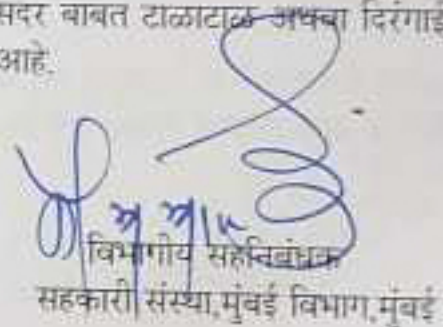 सदर बाबत टाळाटाळ अथवा दिरंगाई
आहे.
विभागीय सहनिबंधक
सहकारी संस्था,मुंबई विभाग,मुंबई